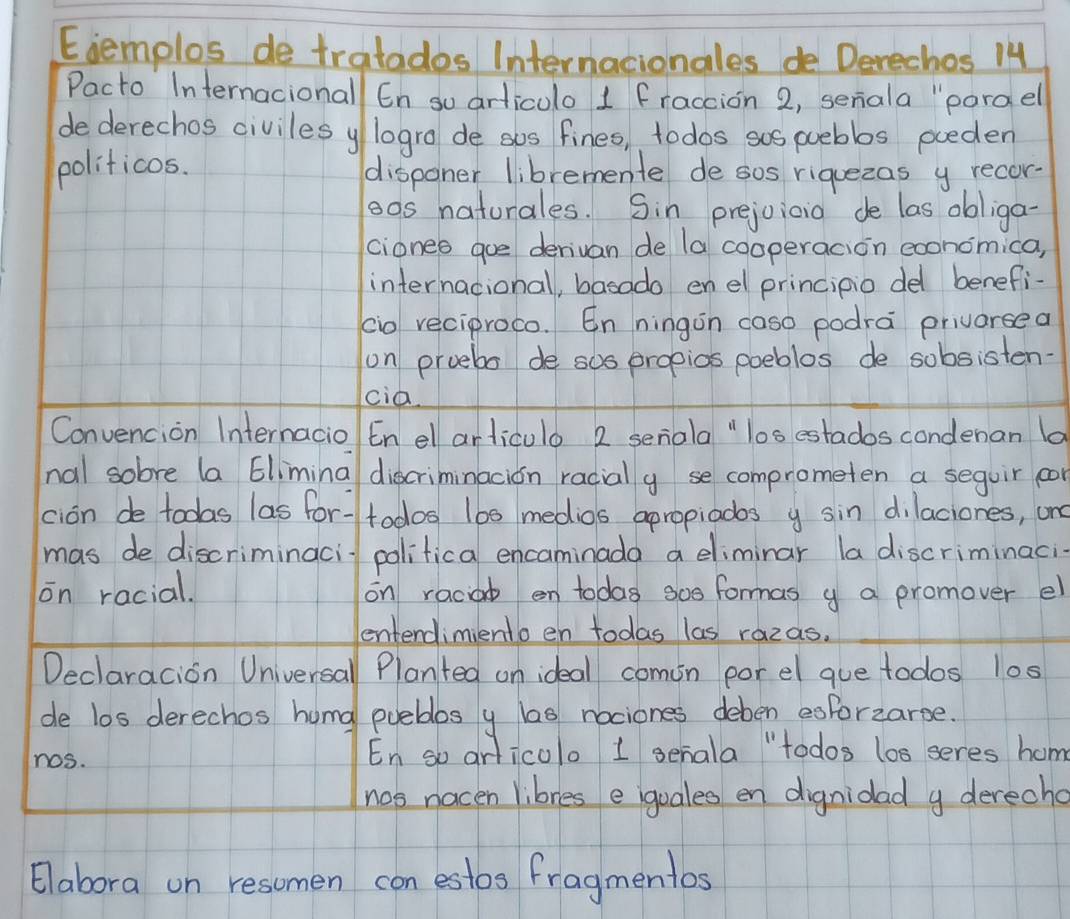 Ejemplos de tratados Internacionales de Derechos 14
Pacto Internacional
de derechos civiles y
politicos.
En su articulo 1 fracción 2, señala "para el
logro de sus fines, todos sus pueblos pueden
disponer libremente de sus riquezas y recur-
sos naturales. Sin prejuicio de las obliga-
ciones que derivan de la cooperación económica,
internacional, basado en el principio del benefi-
cio reciproco. En ningún caso podrá privarse a
un pruebo de sus propios pueblos de subsisten-
cia.
Convención Internacio
nal sobre la Elimina
ción de todas las for-
mas de discriminaci-
ón racial.
En el articulo 2 señala "los estados condenan la
discriminación racial y se comprometen a seguir por
todos los medios apropiados y sin dilaciones, una
politica encaminada a eliminar la discriminaci-
ón racial en todas sus formas y a promover el
entendimiento en todas las razas.
Declaración Universal
de los derechos huma
nos.
Plantea un ideal común por el que todos los
pueblos y las naciones deben esforzarse.
En su articulo 1 señala "todos los seres huma
nos nacen libres e iguales en dignidad y derecho
Elabora un resumen con estos fragmentos